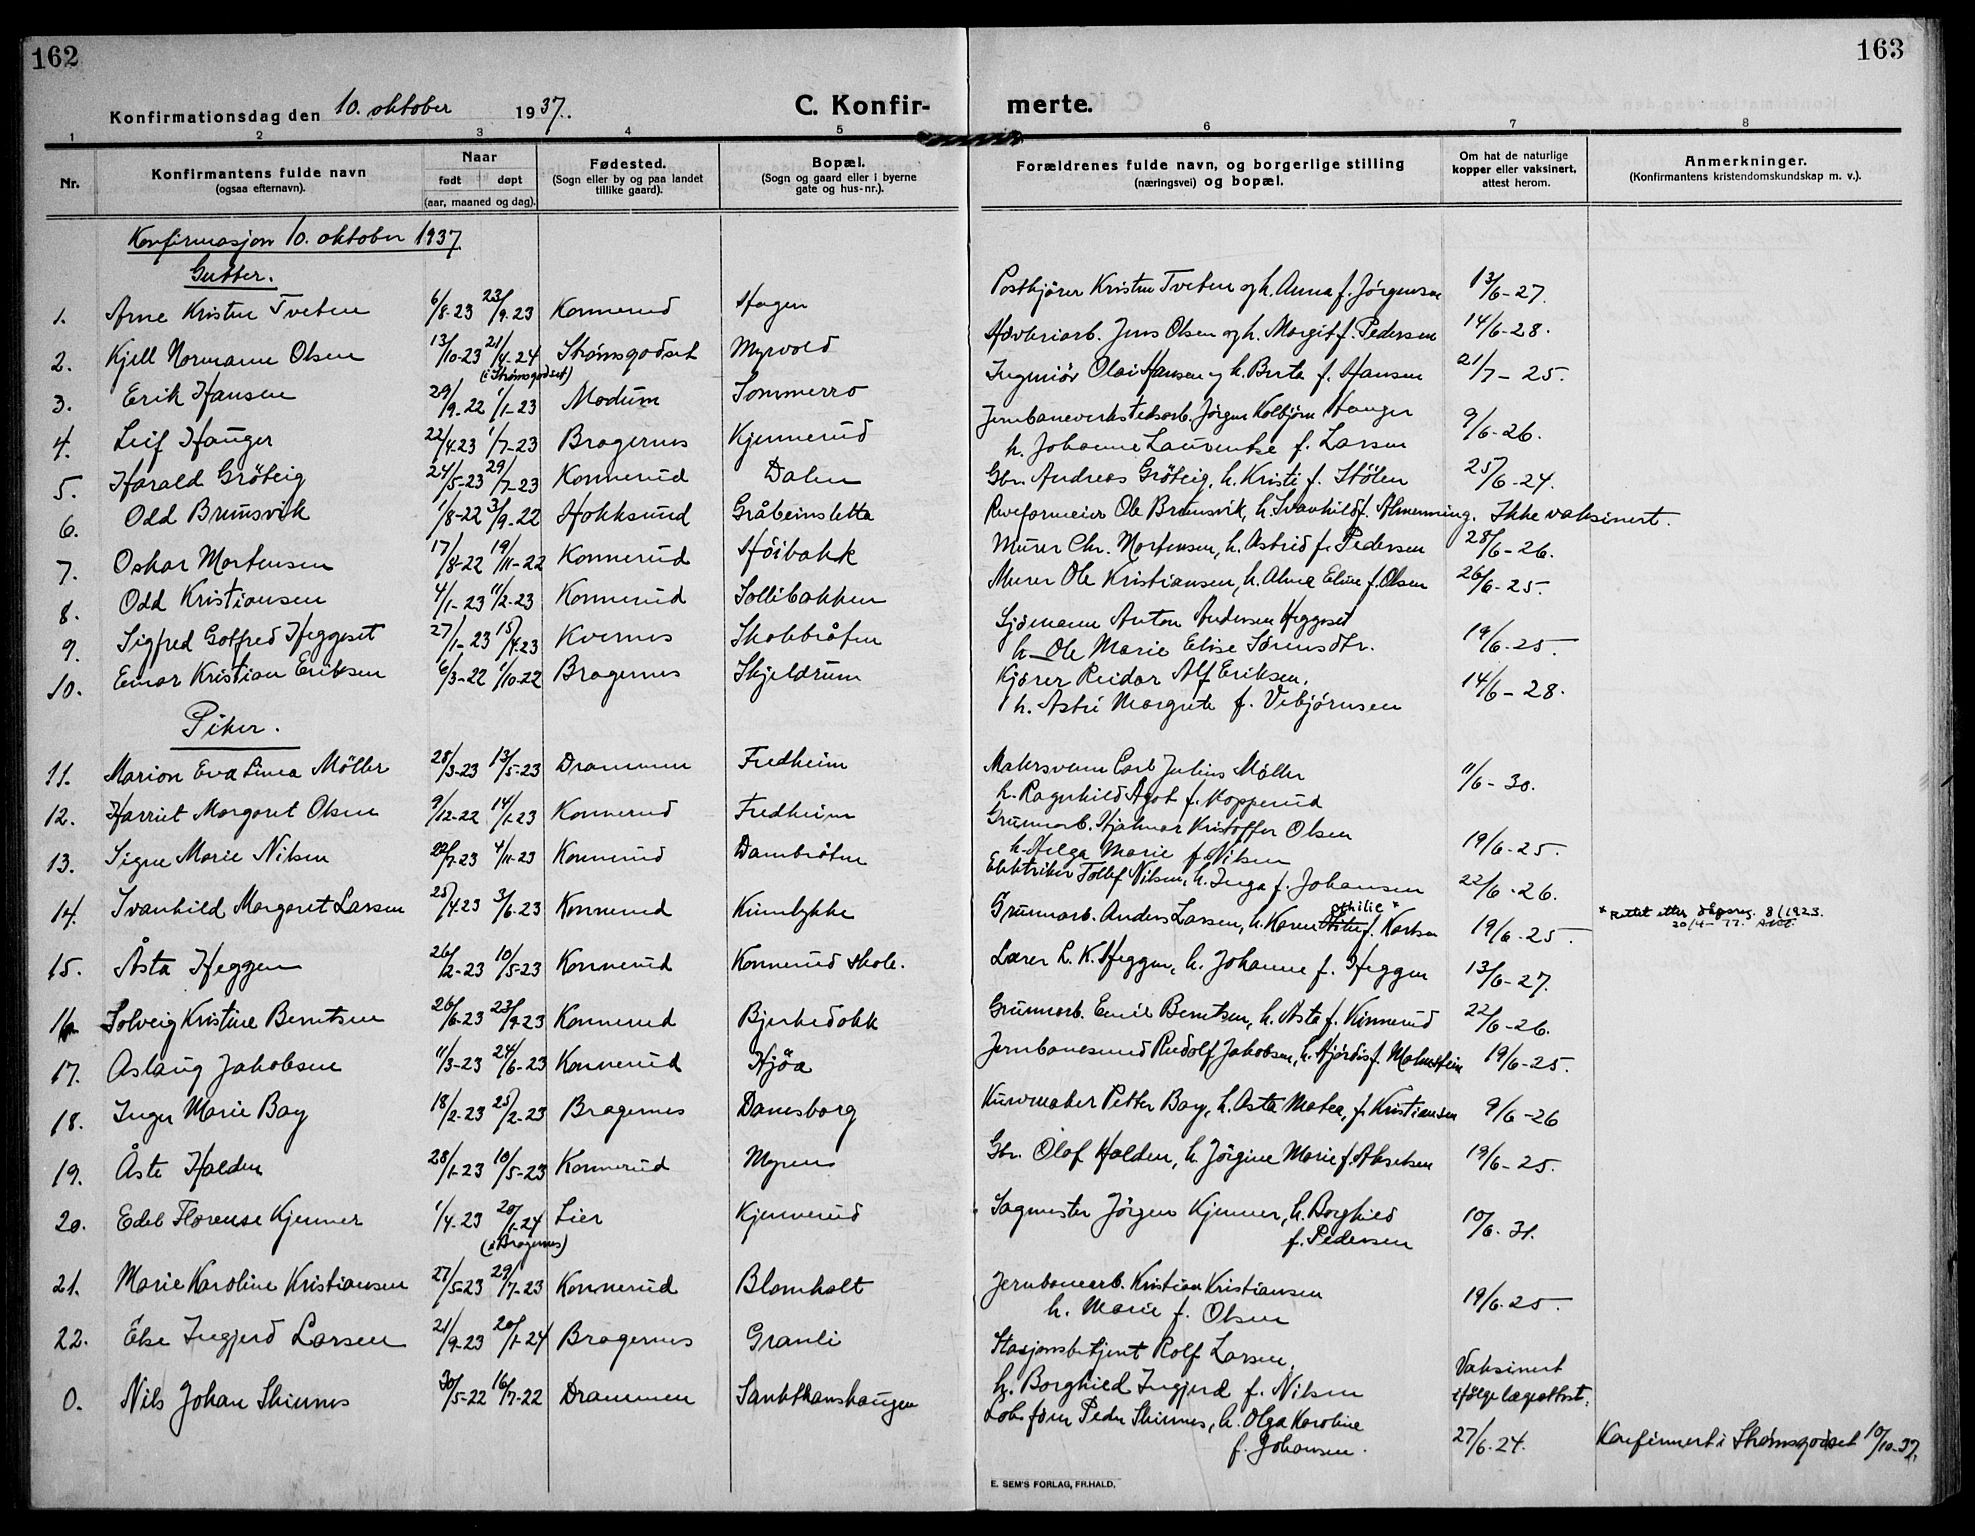 162
163
Konfirmationsdag den 10. oktober 1937.
C. Konfir-
merte.
1 2 3 4 5 6 7 8
Nr.
Konfirmantens fulde navn
(ogsaa efternavn).
Naar
født døpt
(aar, maaned og dag).
Fødested.
(Sogn eller by og paa landet
tillike gaard).
Bopæl.
(Sogn og gaard eller i byerne
gate og hus-nr.).
Forældrenes fulde navn, og borgerlige stilling
(næringsvei) og bopæl.
Om hat de naturlige
kopper eller vaksinert,
attest herom.
Anmerkninger.
(Konfirmantens kristendomskundskap m. v.).
Konfirmasjon 10. oktober 1937.
Gutter.
1. Arne Kristen Tveten 6/8-23 23/9-23 Konnerud Hagen Postkjører Kristen Tveten og h. Anna f. Jörgensen 13/6-27.
2. Kjell Normann Olsen 13/10-23 21/4-24 Strömsgodset Myrvold Jens Olsen og h. Margit f. Pedersen 14/6-28.
(i Strömsgodset)
3. Erik Hansen 29/9-22 1/1-23 Modum Sommerro Ingeniör Olai Hansen og h. Berta f. Hansen 21/7-25.
4. Leif Hauger 22/4-23 1/7-23 Bragernes Kjennerud Jernbaneverkstedsarb. Jörgen Kolbjörn Hauger
h. Johanne Laurentse f. Larsen 9/6-26.
5. Harald Gröteig 24/5-23 29/7-23 Konnerud Dalen Gbr. Andreas Gröteig, h. Kristi f. Stölen 25/6-24.
6. Odd Brunsvik 1/8-22 3/9-22 Hokksund Gråbeinsletta Ole Brunsvik, h. Svanhild f. Almenning. Ikke vaksinert.
7. Oskar Mortensen 17/8-22 19/11-22 Konnerud Höibakk Murer Chr. Mortensen, h. Astrid f. Pedersen 28/6-26.
8. Odd Kristiansen 4/1-23 11/2-23 Konnerud Sollibakken Murer Ole Kristiansen, h. Alma Eline f. Olsen 26/6-25.
9. Sigfred Gotfred Heggeset 27/1-23 15/4-23 Kvernes Skobbråten Sjömann Anton Andersen Heggeset
h. Ole Marie Elise Sörensdtr. 19/6-25.
10. Einar Kristian Eriksen 6/3-22 1/10-22 Bragernes Skjeldrum Kjører Reidar Alf Eriksen,
h. Astri Margrete f. Vebjörnsen 14/6-28.
Piker.
11. Marion Eva Linea Möller 28/3-23 13/5-23 Drammen Fredheim Malersvenn Carl Julius Möller
h. Ragnhild Agot f. Hopperud 11/6-30.
12. Harriet Margaret Olsen 9/12-22 14/1-23 Konnerud Fredheim Grunnarb. Hjalmar Kristoffer Olsen
h. Helga Marie f. Nilsen 19/6-25.
13. Signe Marie Nilsen 22/7-23 4/11-23 Konnerud Dambråten Elektriker Tollef Nilsen, h. Inga f. Johansen 22/6-26.
14. Svanhild Margaret Larsen 25/4-23 3/6-23 Konnerud Kinnlykke Grunnarb. Anders Larsen, h. Karen othilie* f. Karlsen 19/6-25. * Rettet etter dåpsreg. 8/1923.
20/4-77.
15. Åsta Heggen 26/2-23 10/5-23 Konnerud Konnerud skole. Lærer L. K. Heggen, h. Johanne f. Heggen 13/6-27.
16. Solveig Kristine Berntsen 26/6-23 23/9-23 Konnerud Bjerkedokk Grunnarb. Emil Berntsen, h. Asta f. Kinnerud 22/6-26.
17. Aslaug Jakobsen 11/3-23 24/6-23 Konnerud Hjöa Jernbanesmed Rudolf Jakobsen, h. Hjördis f. Malmstein 19/6-25.
18. Inger Marie Bay 18/2-23 25/2-23 Bragernes Danesborg Kurvmaker Petter Bay, h. Asta Matea, f. Kristiansen 9/6-26
19. Åste Halden 28/1-23 10/5-23 Konnerud Myren Gbr. Olaf Halden, h. Jörgine Marie f. Akselsen 19/6-25.
20. Edel Florense Kjenner 1/4-23 20/1-24 Lier Kjennerud Sagmester Jörgen Kjenner, h. Borghild
(i Bragernes) f. Pedersen 10/6-31.
21. Marie Karoline Kristiansen 27/5-23 29/7-23 Konnerud Blomholt Jernbanearb. Kristian Kristiansen
h. Marie f. Olsen 19/6-25.
22. Else Ingjerd Larsen 21/9-23 20/1-24 Bragernes Granli Stasjonsbetjent Rolf Larsen,
h. Borghild Ingjerd f. Nilsen Vaksinert
ifölge lægeattest.
0. Nils Johan Skinnes 30/5-22 16/7-22 Drammen Sankthanshaugen Peder Skinnes, h. Olga Karoline
f. Johansen. 27/6-24. Konfirmert i Strömsgodset 10/10-37.
E. SEM'S FORLAG, FR.HALD.